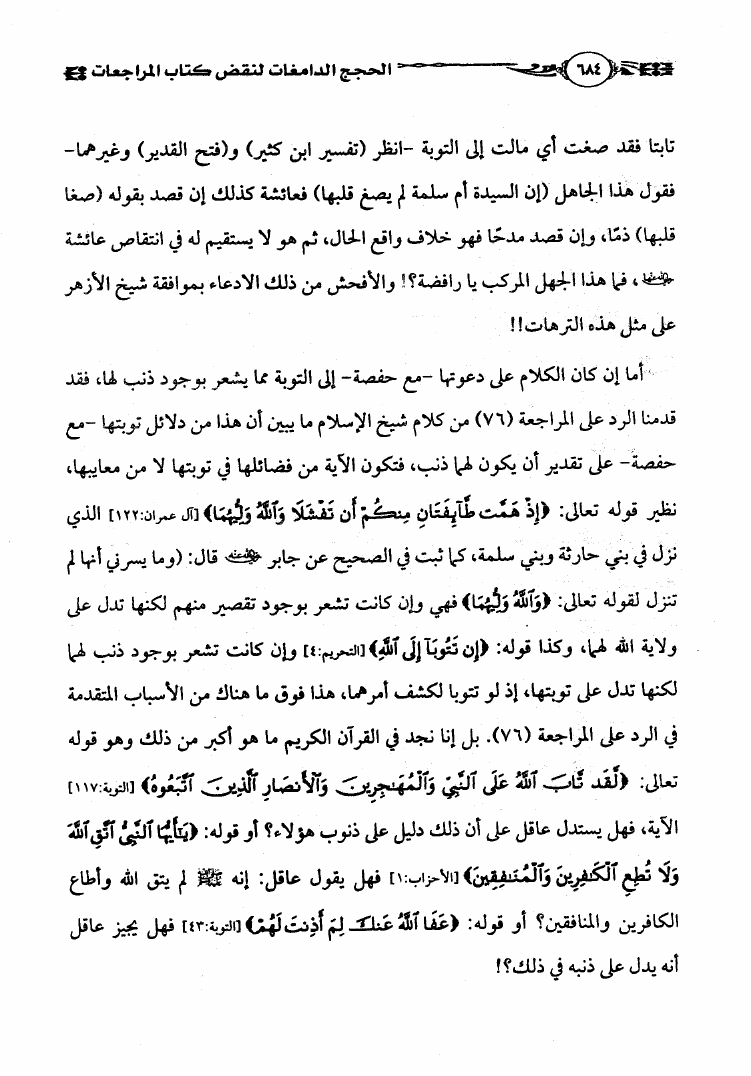 ٦٨٤ الحجج الدامغات لنقض كتاب المراجعات
تابتا فقد صغت أي مالت إلى التوبة -انظر (تفسير ابن كثير) و(فتح القدير) وغيرهما-
فقول هذا الجاهل (إن السيدة أم سلمة لم يصغ قلبها) فعائشة كذلك إن قصد بقوله (صغا
قلبها) ذمًا، وإن قصد مدحًا فهو خلاف واقع الحال، ثم هو لا يستقيم له في انتقاص عائشة
رضي الله عنها، فما هذا الجهل المركب يا رافضة؟! والأفحش من ذلك الادعاء بموافقة شيخ الأزهر
على مثل هذه الترهات!!
أما إن كان الكلام على دعوتها -مع حفصة- إلى التوبة مما يشعر بوجود ذنب لها، فقد
قدمنا الرد على المراجعة (٧٦) من كلام شيخ الإسلام ما يبين أن هذا من دلائل توبتها -مع
حفصة- على تقدير أن يكون لهما ذنب، فتكون الآية من فضائلها في توبتها لا من معايبها،
نظير قوله تعالى: ﴿إِذْ هَمَّت طَّآئِفَتَانِ مِنكُمْ أَن تَفْشَلَا وَٱللَّهُ وَلِيُّهُمَا﴾ [آل عمران:١٢٢] الذي
نزل في بني حارثة وبني سلمة، كما ثبت في الصحيح عن جابر رضي الله عنه قال: (وما يسرني أنها لم
تنزل لقوله تعالى: ﴿وَٱللَّهُ وَلِيُّهُمَا﴾ فهي وإن كانت تشعر بوجود تقصير منهم لكنها تدل على
ولاية الله لهما، وكذا قوله: ﴿إِن تَتُوبَآ إِلَى ٱللَّهِ﴾ [التحريم:٤] وإن كانت تشعر بوجود ذنب لهما
لكنها تدل على توبتها، إذ لو تتوبا لكشف أمرهما، هذا فوق ما هناك من الأسباب المتقدمة
في الرد على المراجعة (٧٦). بل إنا نجد في القرآن الكريم ما هو أكبر من ذلك وهو قوله
تعالى: ﴿لَّقَد تَّابَ ٱللَّهُ عَلَى ٱلنَّبِيِّ وَٱلْمُهَٰجِرِينَ وَٱلْأَنصَارِ ٱلَّذِينَ ٱتَّبَعُوهُ﴾ [التوبة:١١٧]
الآية، فهل يستدل عاقل على أن ذلك دليل على ذنوب هؤلاء؟ أو قوله: ﴿يَٰٓأَيُّهَا ٱلنَّبِىُّ ٱتَّقِ ٱللَّهَ
وَلَا تُطِعِ ٱلْكَٰفِرِينَ وَٱلْمُنَٰفِقِينَ﴾ [الأحزاب:١] فهل يقول عاقل: إنه ﷺ لم يتق الله وأطاع
الكافرين والمنافقين؟ أو قوله: ﴿عَفَا ٱللَّهُ عَنكَ لِمَ أَذِنتَ لَهُمْ﴾ [التوبة:٤٣] فهل يجيز عاقل
أنه يدل على ذنبه في ذلك؟!